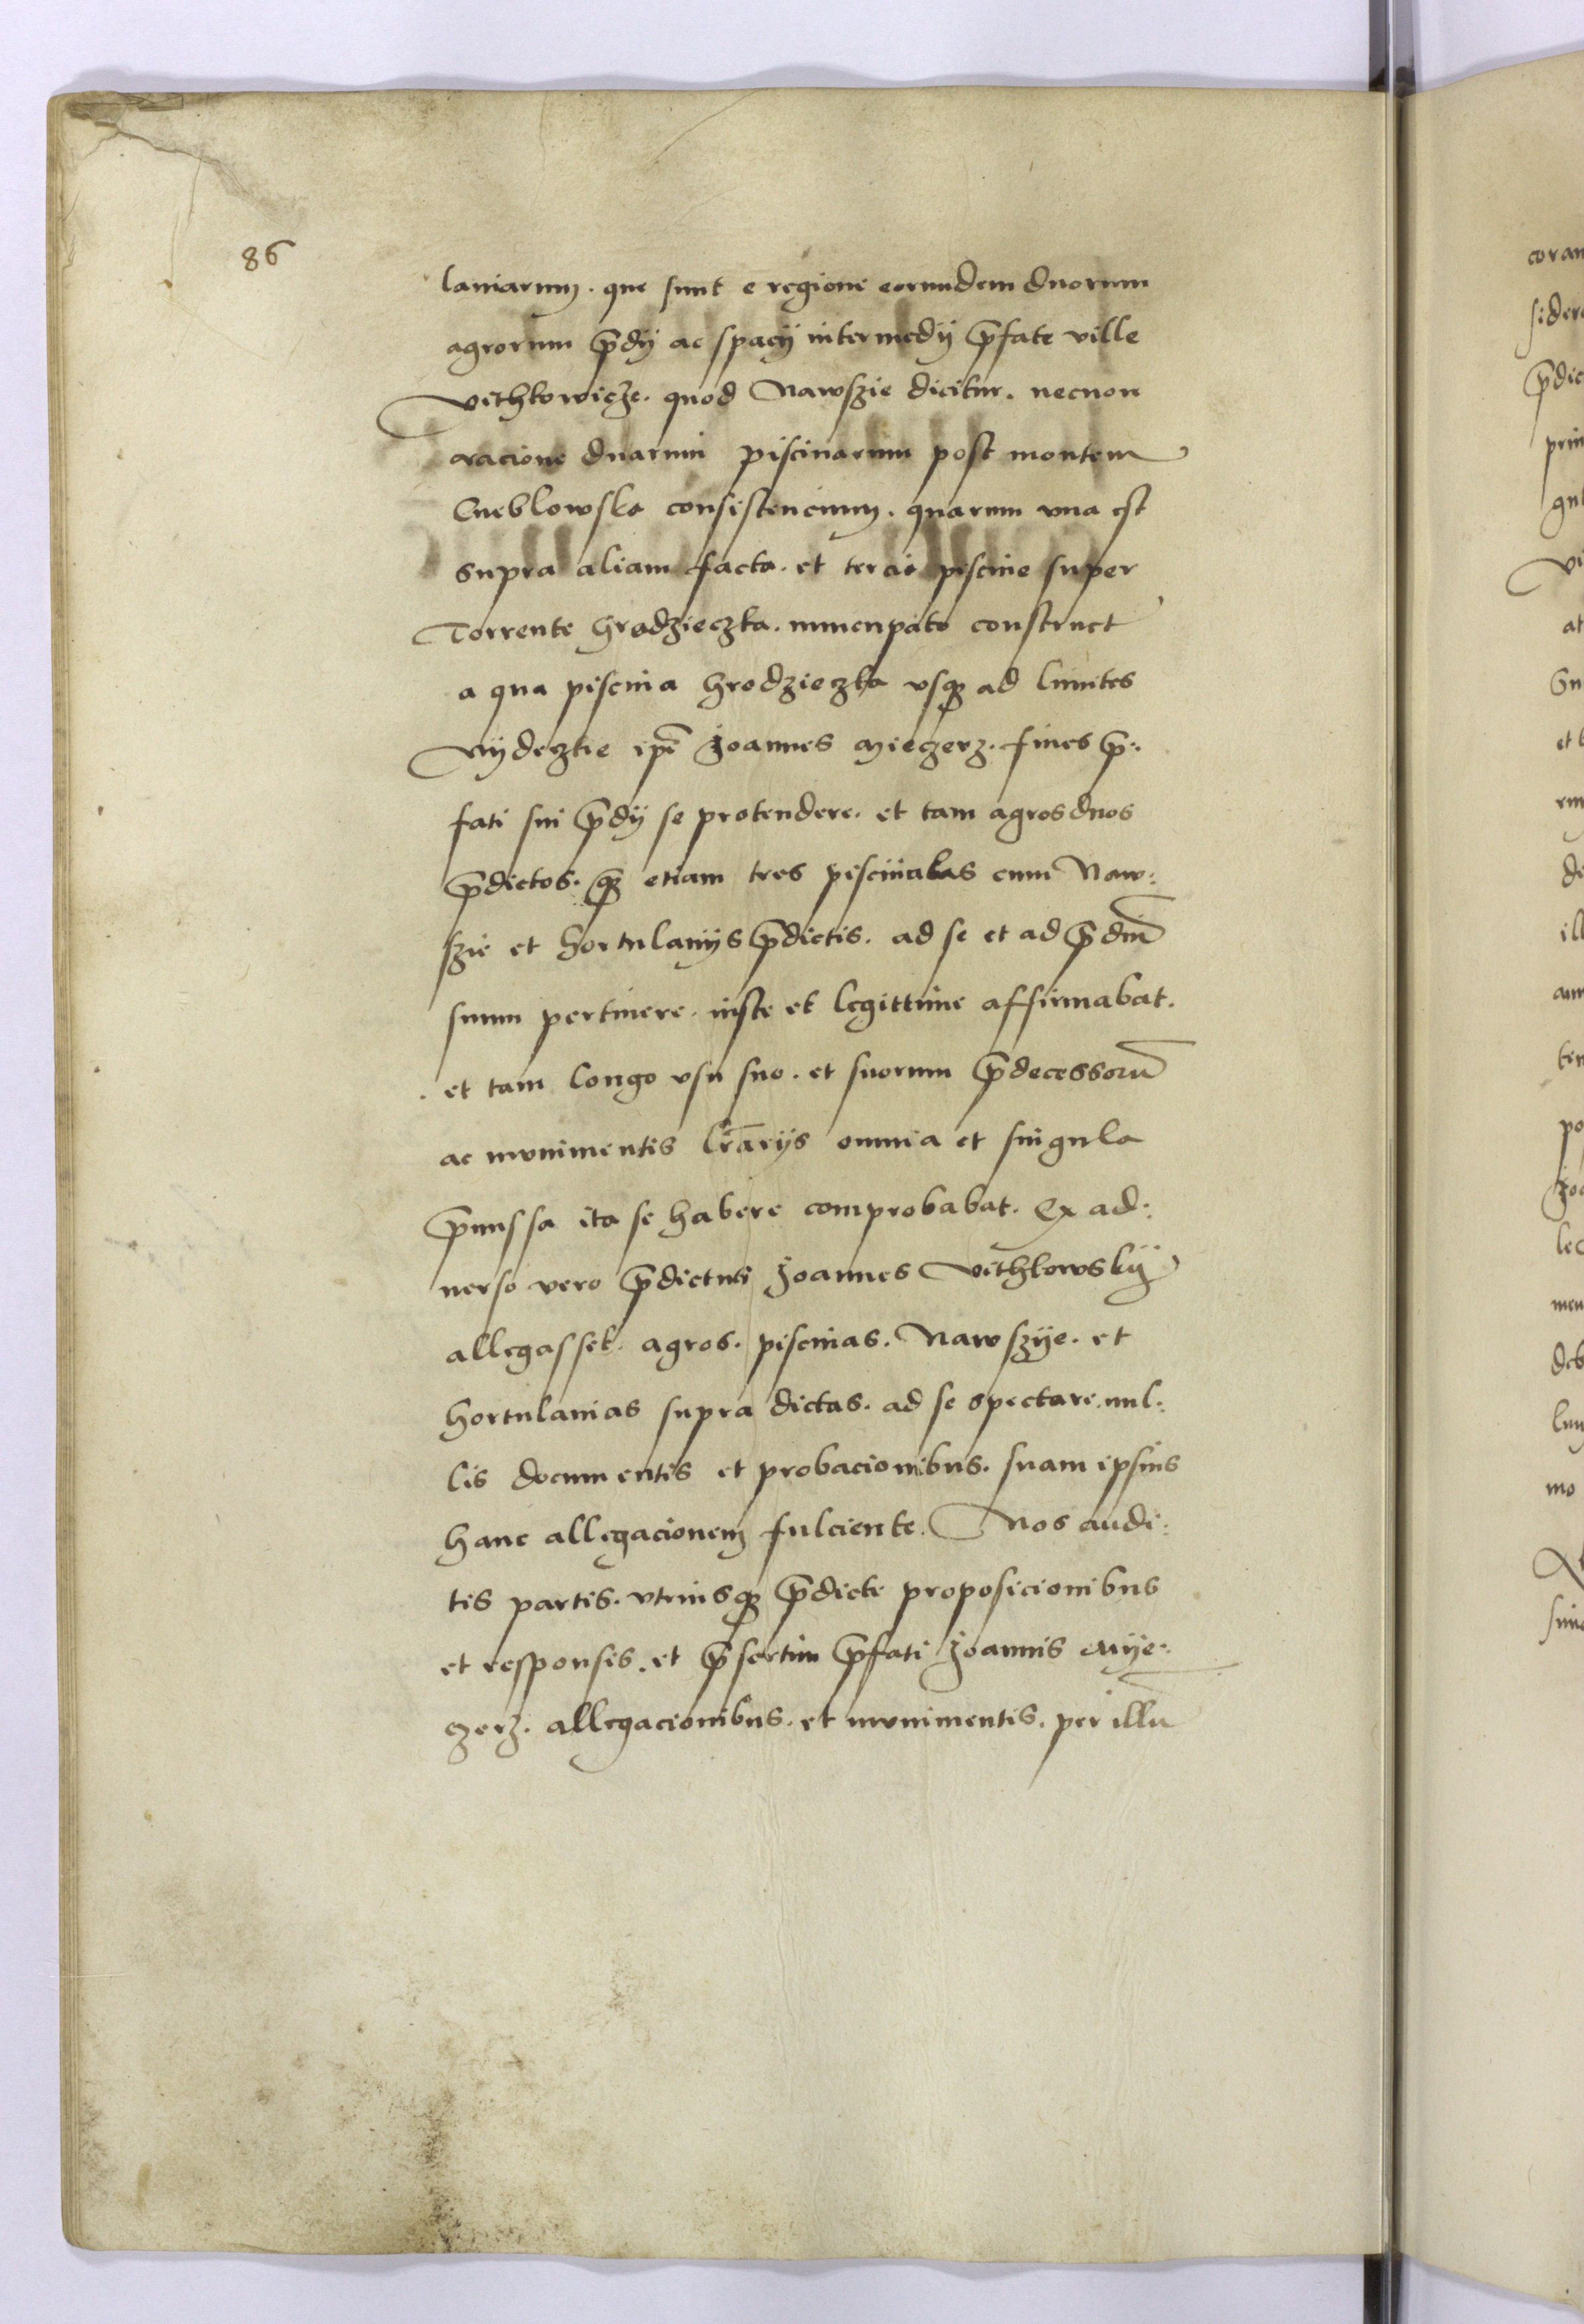 86
laniarum. que sunt e regione eorundem duorum
agrorum p̄dij ac spacij intermedij p̄fate ville
Vithkowicze. quod Nawszie dicitur. necnon
racione duarum piscinarum post montem
Cueblowska consistencium. quarum vna est
supra aliam facta. et tercie piscine super
Torrente Hrodzieczka. nuncupato construct
a qua piscina Hrodzieczka vsq ad limites
Vijdeczkie ip̄e Joannes Mieczerz. fines p̄:
fati sui p̄dij se protendere. et tam agros duos
p̄dictos. q etiam tres piscinulas cum Naw:
szie et hortulanijs p̄dictis. ad se et ad p̄diū
suum pertinere. iuste et legittime affirmabat.
et tam longo vsu suo. et suorum p̄decessorū
ac munimentis lr̄arijs omnia et singula
p̄missa ita se habere comprobabat. Ex ad:
uerso vero p̄dictus Joannes Vithkowskij
allegasset. agros. piscinas. Nawszije. et
hortulanias supra dictas. ad se spectare. nul:
lis documentis et probacionibus. suam ipsius
hanc allegacionem fulciente. Nos audi:
tis partis. vtriusq p̄dicte proposicionibus
et responsis. et p̄sertim p̄fati Joannis Mije:
czerz. allegacionibus. et munimentis. per illū
coram
p̄dic
prin
at
et
de
ill
po
mo